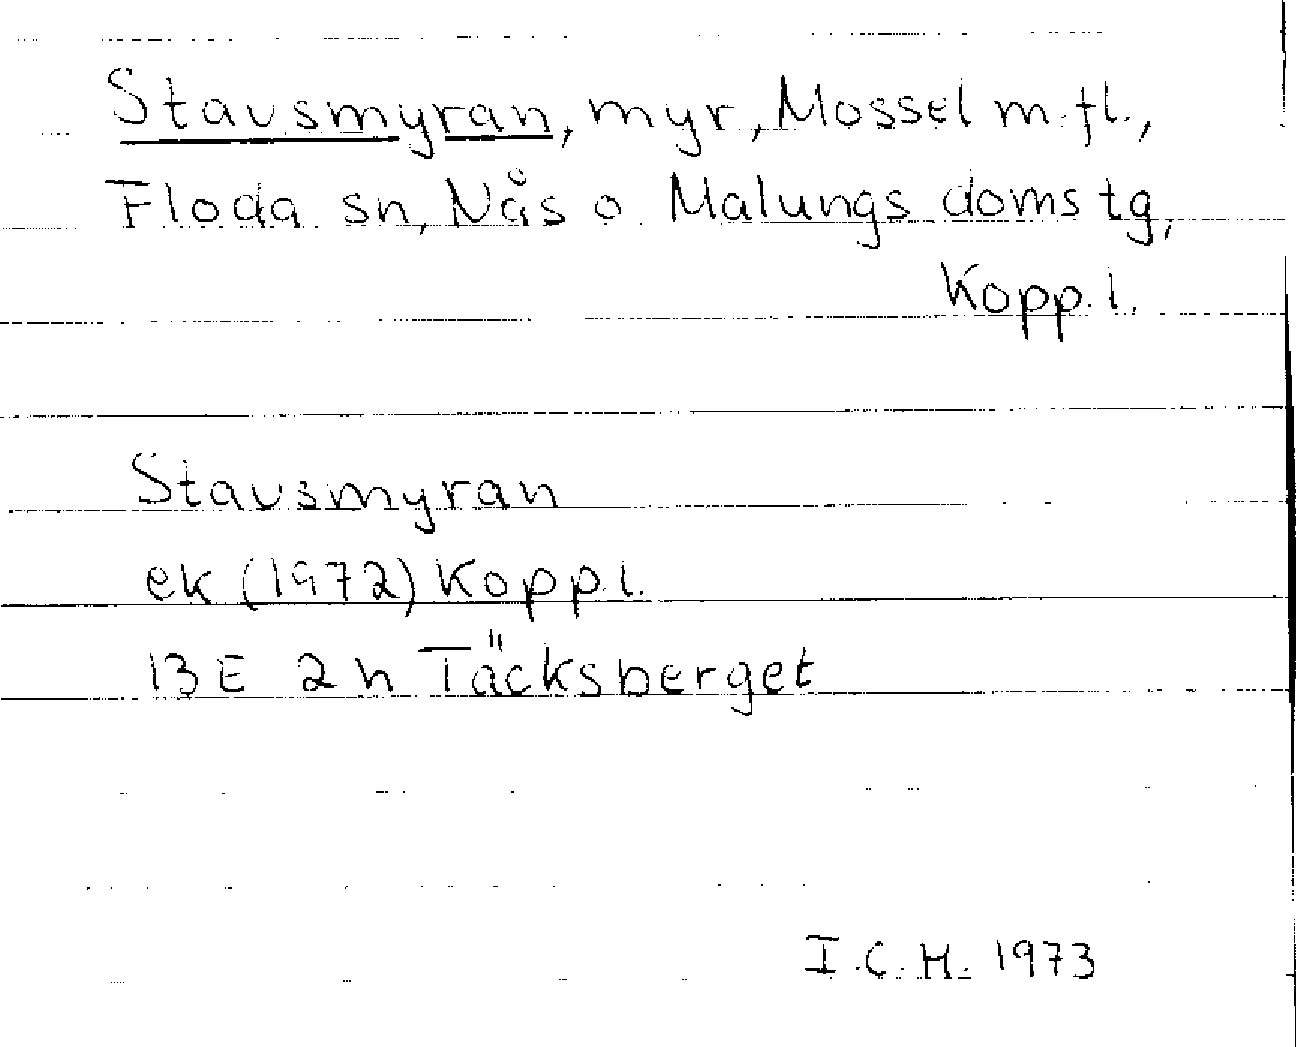 Stavsmyran, myr, Mossel m.fl.,
Floda sn, Nås o. Malungs domstg,
Kopp.l.
Stavsmyran
ek (1972) Kopp.l.
13E 2h Täcksberget
I.C.H. 1973